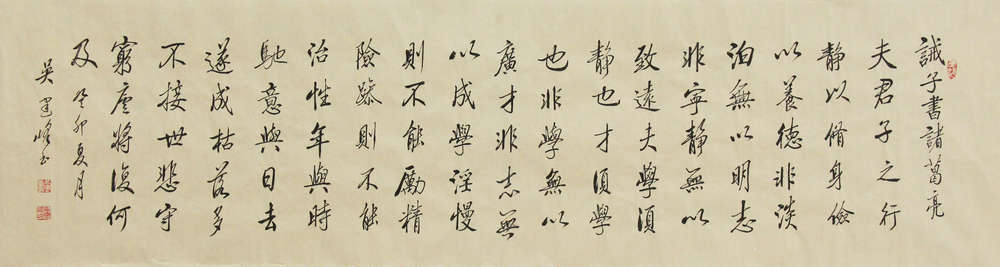 誡子書諸葛亮
夫君子之行
靜以脩身儉
以養德非淡
泊無以明志
非寧靜無以
致遠夫學須
靜也才須學
也非學無以
廣才非志無
以成學淫慢
則不能勵精
險躁則不能
治性年與時
馳意與日去
遂成枯落多
不接世悲守
窮廬將復何
及 癸卯夏月
吴峰书